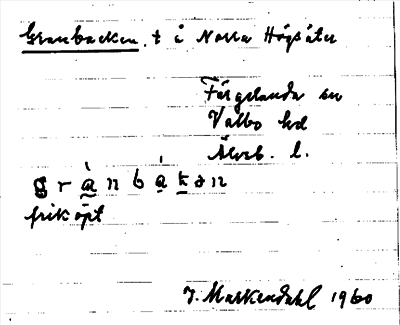 Granbacken, t i Norra Högsäter
Färgelanda sn
Valbo hd
Älvsb. l.
g r à n b á k ə n
friköpt
J. Markendahl 1960